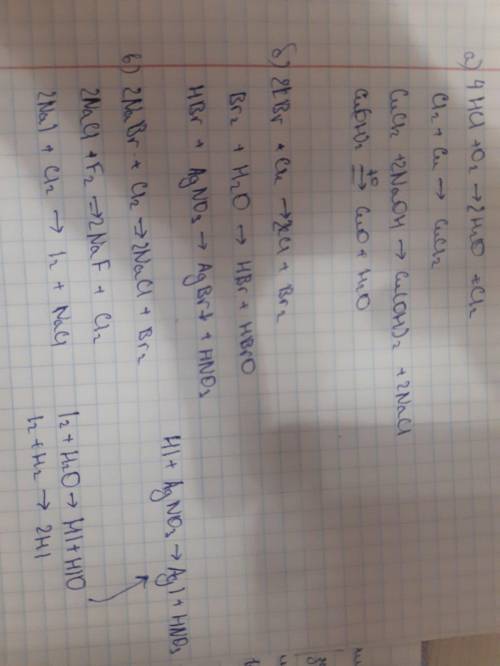 а) 4HCl + O2 → 2H2O + Cl2
Cl2 + Cu → CuCl2
CuCl2 + 2NaOH → Cu(OH)2 + 2NaCl
Cu(OH)2 =t°=> CuO + H2O
б) 2KBr + Cl2 → 2KCl + Br2
Br2 + H2O → HBr + HBrO
HBr + AgNO3 → AgBr↓ + HNO3
в) 2NaBr + Cl2 → 2NaCl + Br2
2NaCl + F2 → 2NaF + Cl2
2NaI + Cl2 → I2 + NaCl
I2 + H2O → HI + HIO
I2 + H2 → 2HI
HI + AgNO3 → AgI + HNO3